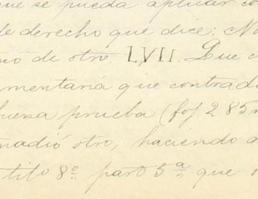 que se pueda aplicar co
de derecho que dice: No
no de otro LVII. Que c
mentaria que contrad
buena prueba (fof 285
nadió otro, haciendo a
tit° 8° part 5ª que